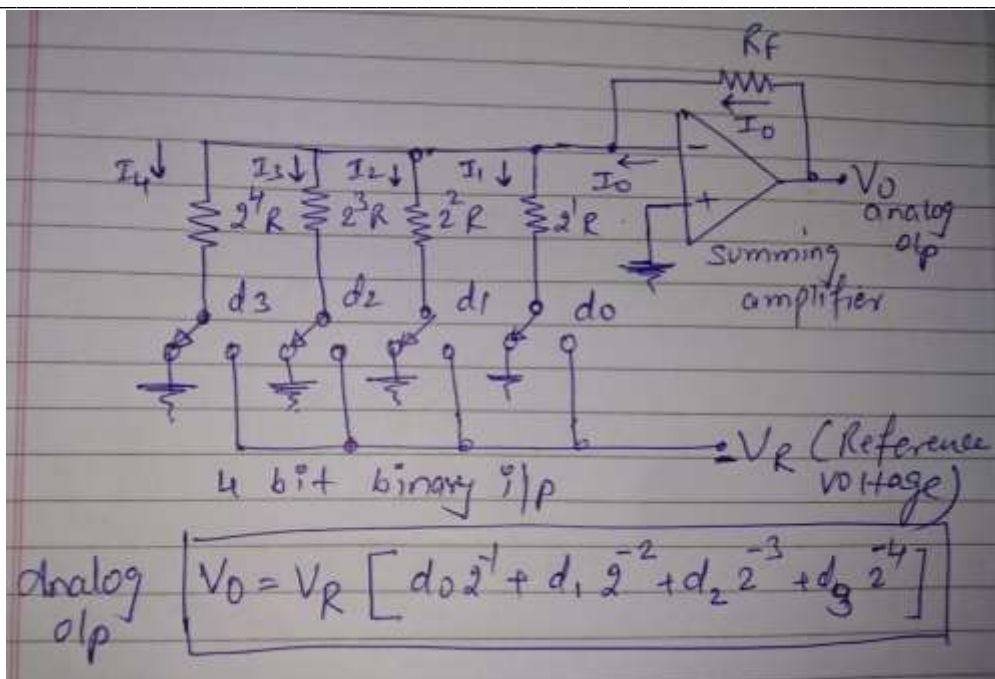 RF
I0
I4↓ I3↓ I2↓ I1↓ I0
2⁴R 2³R 2²R 2¹R
- +
V0
analog
o/p
summing
amplifier
d3 d2 d1 d0
-VR (Reference
voltage)
4 bit binary i/p
Analog
o/p
V0 = VR [ d0 2⁻¹ + d1 2⁻² + d2 2⁻³ + d3 2⁻⁴ ]